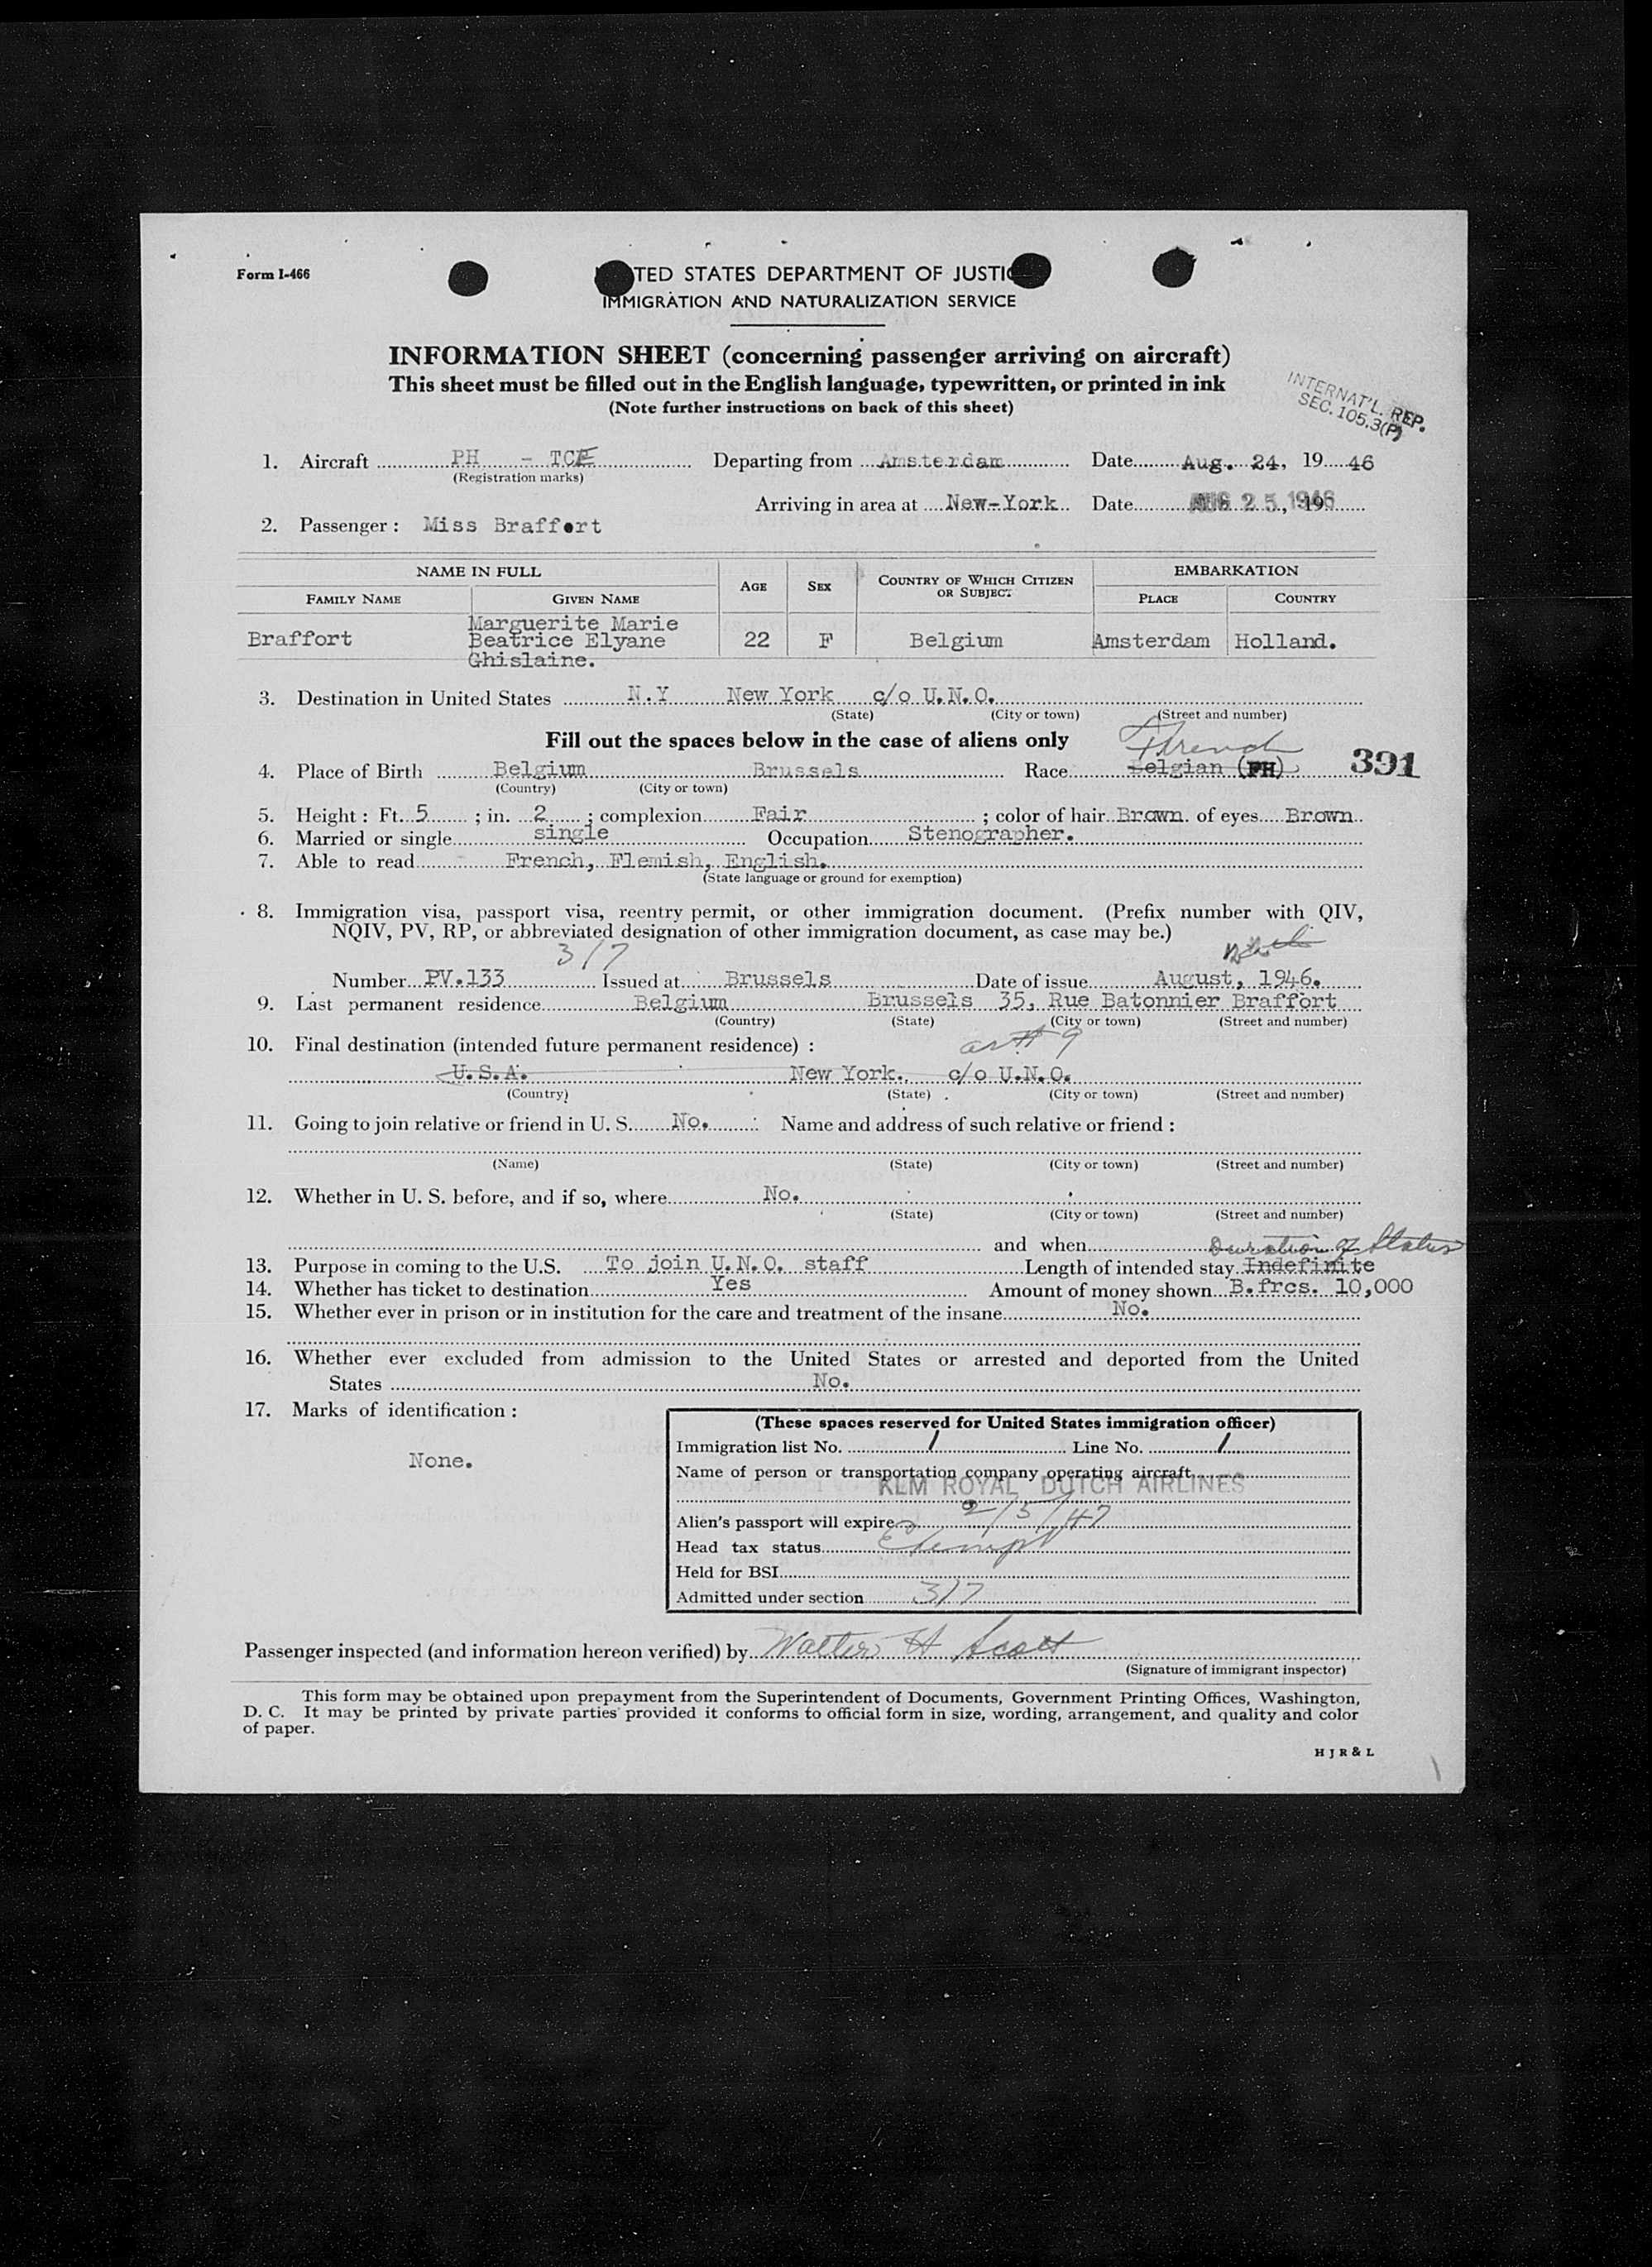 Form I-466
TED STATES DEPARTMENT OF JUSTIC
IMMIGRATION AND NATURALIZATION SERVICE
INFORMATION SHEET (concerning passenger arriving on aircraft)
This sheet must be filled out in the English language, typewritten, or printed in ink
(Note further instructions on back of this sheet)
INTERNAT'L. REP.
SEC. 105.3(P)
1. Aircraft PH - TCE Departing from Amsterdam Date Aug. 24, 19 46
(Registration marks)
Arriving in area at New-York Date AUG 25, 1946
2. Passenger : Miss Braffort
NAME IN FULL AGE SEX COUNTRY OF WHICH CITIZEN OR SUBJECT EMBARKATION
FAMILY NAME GIVEN NAME PLACE COUNTRY
Marguerite Marie
Braffort Beatrice Elyane 22 F Belgium Amsterdam Holland.
Ghislaine.
3. Destination in United States N.Y New York c/o U.N.O.
(State) (City or town) (Street and number)
Fill out the spaces below in the case of aliens only
French
4. Place of Birth Belgium Brussels Race Belgian (FH) 391
(Country) (City or town)
5. Height : Ft. 5 ; in. 2 ; complexion Fair ; color of hair Brown of eyes Brown
6. Married or single single Occupation Stenographer.
7. Able to read French, Flemish, English.
(State language or ground for exemption)
8. Immigration visa, passport visa, reentry permit, or other immigration document. (Prefix number with QIV,
NQIV, PV, RP, or abbreviated designation of other immigration document, as case may be.)
3/7
Number PV.133 Issued at Brussels Date of issue August, 1946.
9. Last permanent residence Belgium Brussels 35, Rue Batonnier Braffort
(Country) (State) (City or town) (Street and number)
10. Final destination (intended future permanent residence) :
U.S.A. New York. c/o U.N.O.
(Country) (State) (City or town) (Street and number)
11. Going to join relative or friend in U. S. No. : Name and address of such relative or friend :
(Name) (State) (City or town) (Street and number)
12. Whether in U. S. before, and if so, where No.
(State) (City or town) (Street and number)
and when Duration of Status
13. Purpose in coming to the U.S. To join U.N.O. staff Length of intended stay Indefinite
14. Whether has ticket to destination Yes Amount of money shown B.frcs. 10,000
15. Whether ever in prison or in institution for the care and treatment of the insane No.
16. Whether ever excluded from admission to the United States or arrested and deported from the United
States No.
17. Marks of identification :
None.
(These spaces reserved for United States immigration officer)
Immigration list No. 1 Line No. 1
Name of person or transportation company operating aircraft
KLM ROYAL DUTCH AIRLINES
Alien's passport will expire 2/5/47
Head tax status Exempt
Held for BSI
Admitted under section 3/7
Passenger inspected (and information hereon verified) by Walter H Scott
(Signature of immigrant inspector)
This form may be obtained upon prepayment from the Superintendent of Documents, Government Printing Offices, Washington,
D. C. It may be printed by private parties provided it conforms to official form in size, wording, arrangement, and quality and color
of paper.
H J R & L